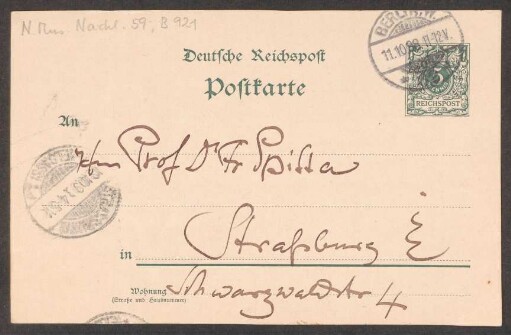 N. Mus. Nachl. 59, B 921
BERLIN W.
11.10.98. 11-12V.
Deutsche Reichspost
Postkarte
5
REICHSPOST
An
Herrn Prof Dr Fr Spitta
in
Straßburg E
Wohnung
(Straße und Hausnummer)
Schwarzwaldstr 4